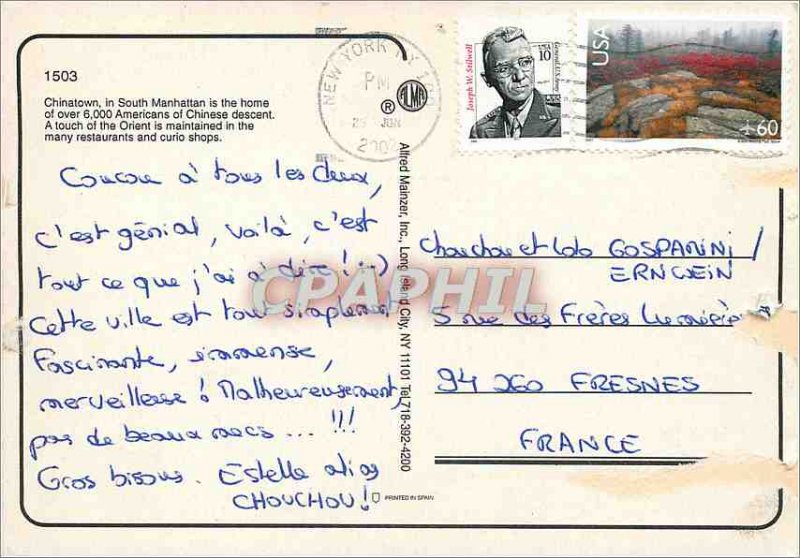 1503
Chinatown, in South Manhattan is the home
of over 6,000 Americans of Chinese descent.
A touch of the Orient is maintained in the
many restaurants and curio shops.
Coucou à tous les deux,
c'est génial, voilà, c'est
tout ce que j'ai à dire ! :-)
Cette ville est tout simplement
fascinante, immense,
merveilleuse ! Malheureusement,
pas de beaux mecs ... !!!
Gros bisous. Estelle alias
CHOUCHOU !
PRINTED IN SPAIN
Alfred Mainzer, Inc., Long Island City, NY 11101 Tel. 718-392-4200
ALMA
®
NEW YORK NY
PM
JUN
Joseph W. Stilwell
USA
10
General, U.S. Army
USA
60
Chouchou et Lolo GOSPARINI /
ERNWEIN
5 rue des Frères Lumière
94 260 FRESNES
FRANCE
CPAPHIL